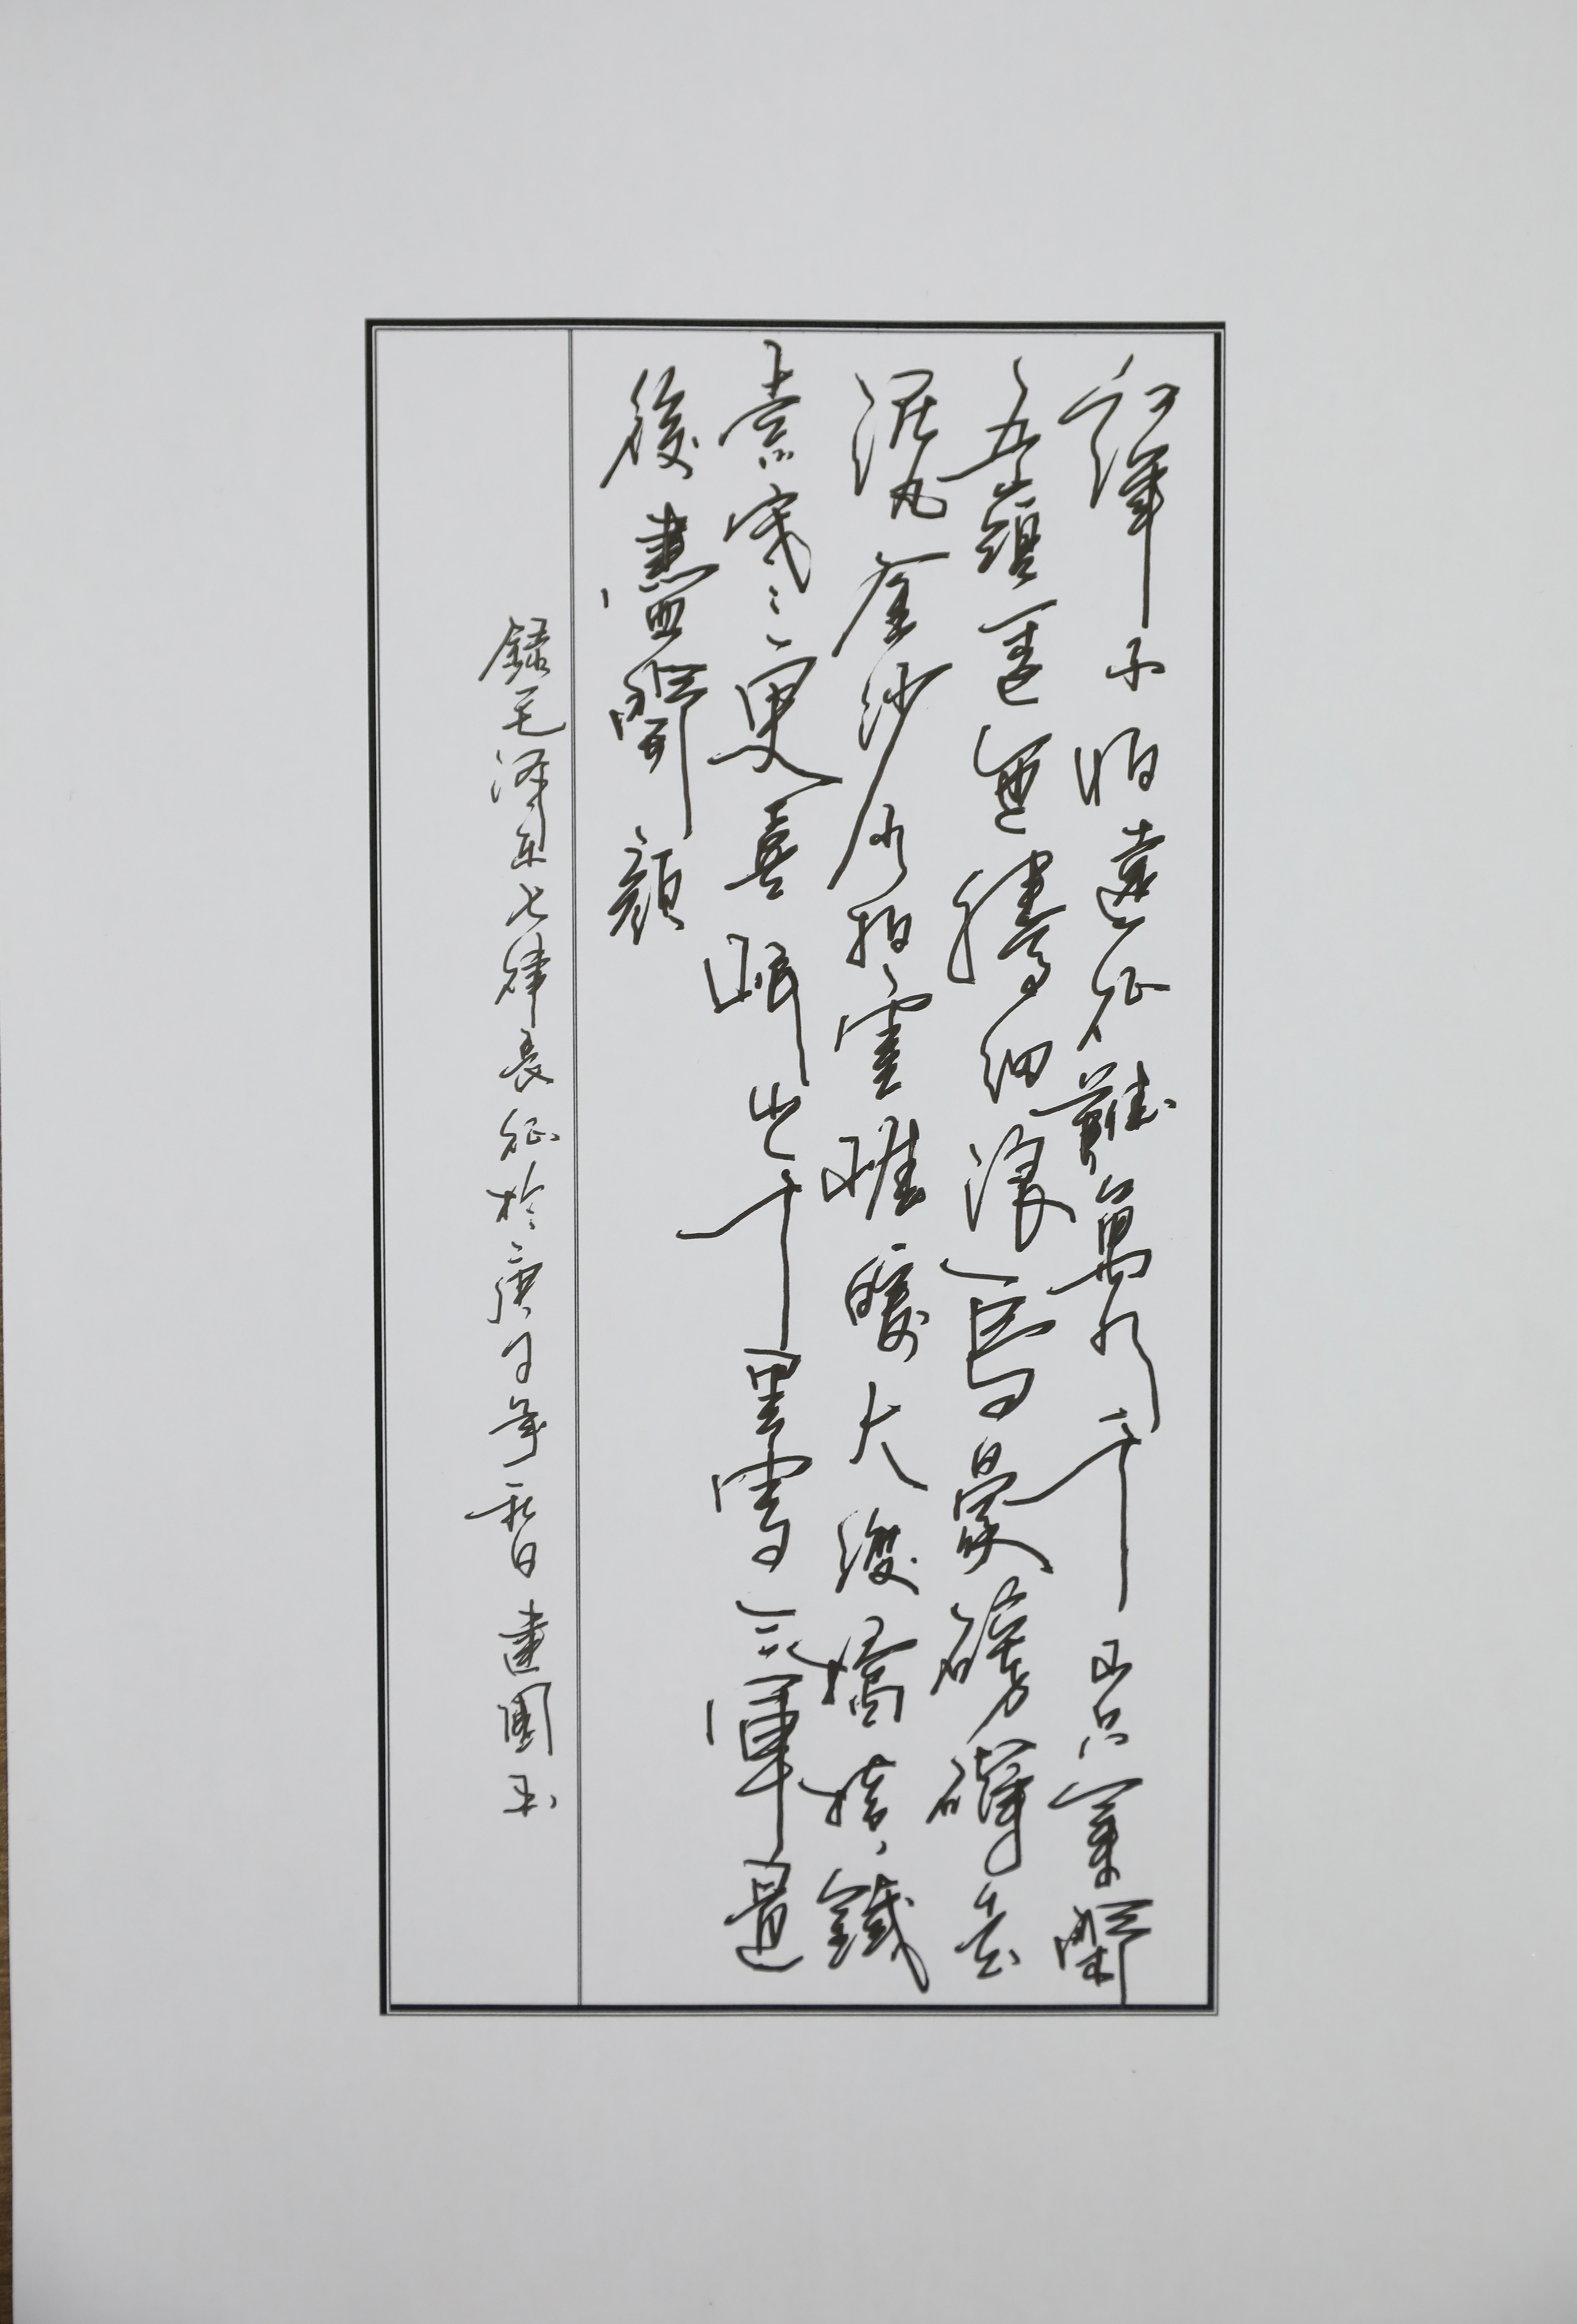 紅軍不怕遠征難萬水千山只等閑
五嶺逶迤騰細浪烏蒙磅礴走
泥丸金沙水拍雲崖暖大渡橋橫鐵
索寒更喜岷山千里雪三軍過
後盡開顏
錄毛澤東七律長征於庚子年秋日建國書